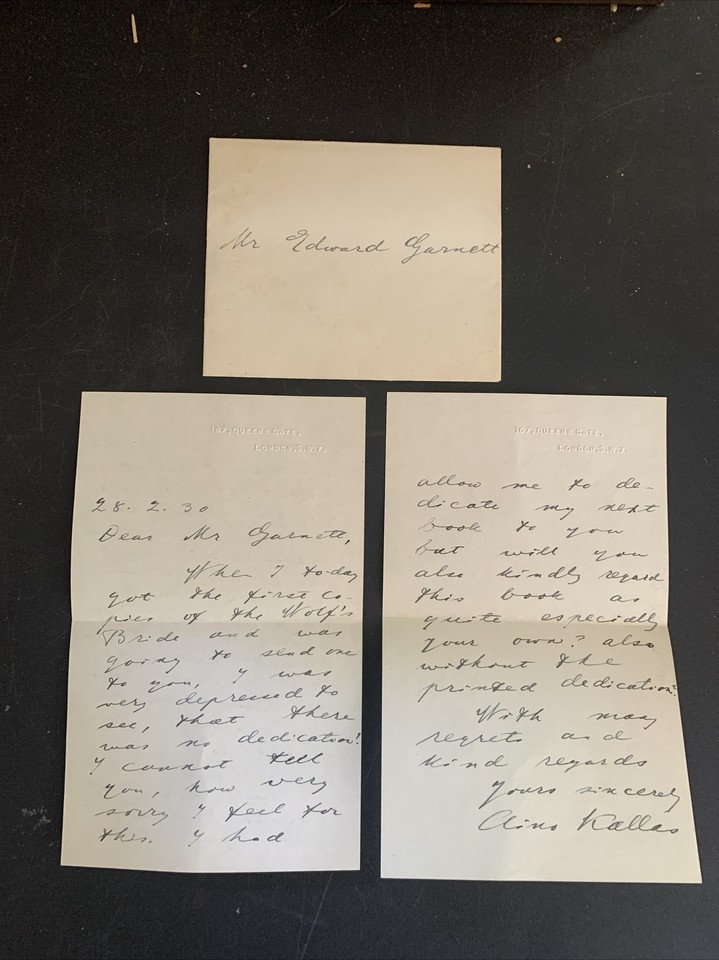 Mr Edward Garnett
107, QUEEN'S GATE,
LONDON, S.W.7.
28. 2. 30
Dear Mr Garnett,
When I to-day
got the first co-
pies of the Wolf's
Bride and was
going to send one
to you, I was
very depressed to
see, that there
was no dedication!
I cannot tell
you, how very
sorry I feel for
this. I had
107, QUEEN'S GATE,
LONDON, S.W.7.
allow me to de-
dicate my next
book to you
but will you
also kindly regard
this book as
quite especially
your own? also
without the
printed dedication?
With many
regrets and
kind regards
Yours sincerely
Aino Kallas